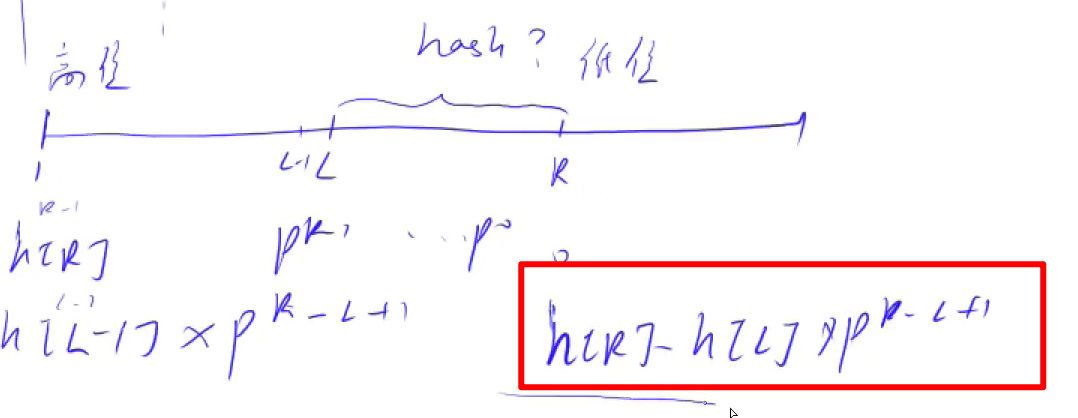 hash?
高位 低位
1 L-1 L R
R-1
h[R] p^{R-1} ... p^0
h[L-1] × p^{R-L+1}
h[R] - h[L] × p^{R-L+1}